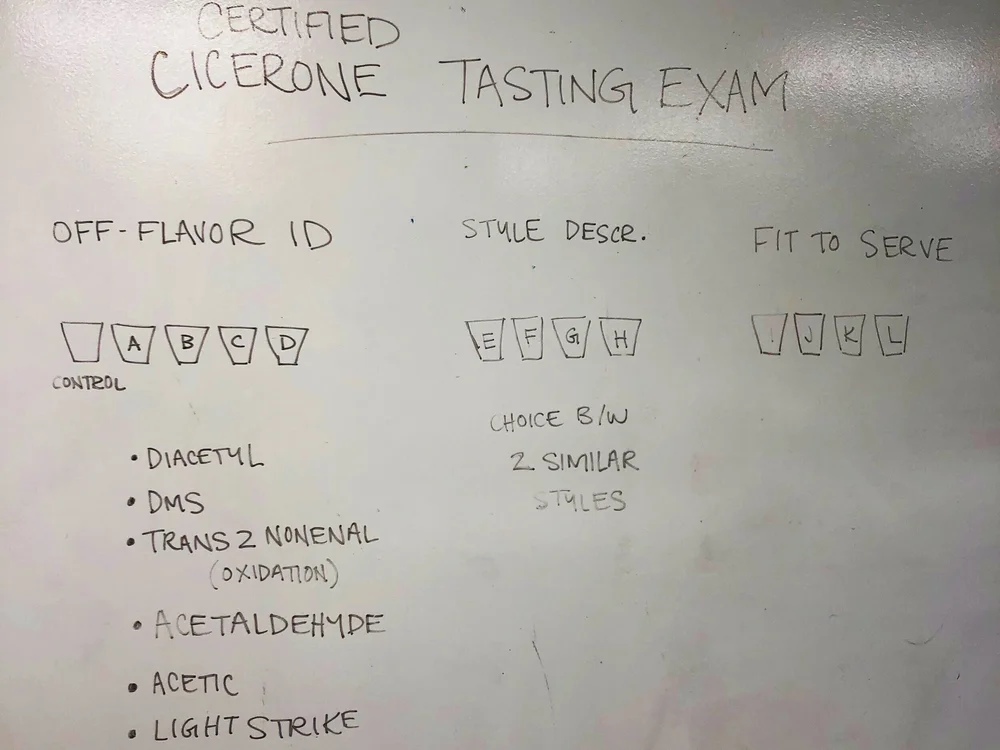 CERTIFIED
CICERONE TASTING EXAM
OFF-FLAVOR ID
A B C D
CONTROL
• DIACETYL
• DMS
• TRANS 2 NONENAL
(OXIDATION)
• ACETALDEHYDE
• ACETIC
• LIGHT STRIKE
STYLE DESCR.
E F G H
CHOICE B/W
2 SIMILAR
STYLES
FIT TO SERVE
I J K L